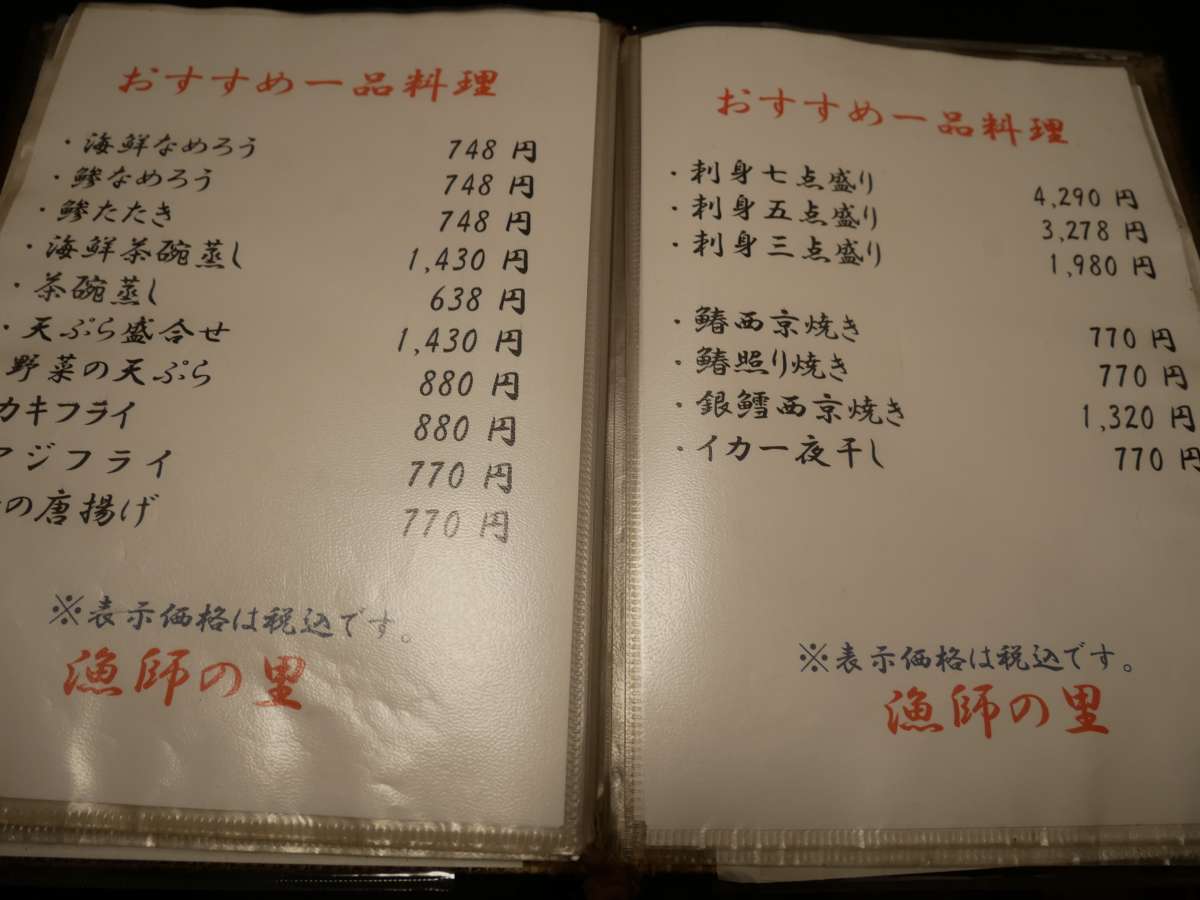 おすすめ一品料理
・海鮮なめろう 748 円
・鯵なめろう 748 円
・鯵たたき 748 円
・海鮮茶碗蒸し 1,430 円
・茶碗蒸し 638 円
・天ぷら盛合せ 1,430 円
野菜の天ぷら 880 円
カキフライ 880 円
アジフライ 770 円
の唐揚げ 770 円
※表示価格は税込です。
漁師の里
おすすめ一品料理
・刺身七点盛り 4,290 円
・刺身五点盛り 3,278 円
・刺身三点盛り 1,980 円
・鰆西京焼き 770 円
・鰆照り焼き 770 円
・銀鱈西京焼き 1,320 円
・イカ一夜干し 770 円
※表示価格は税込です。
漁師の里